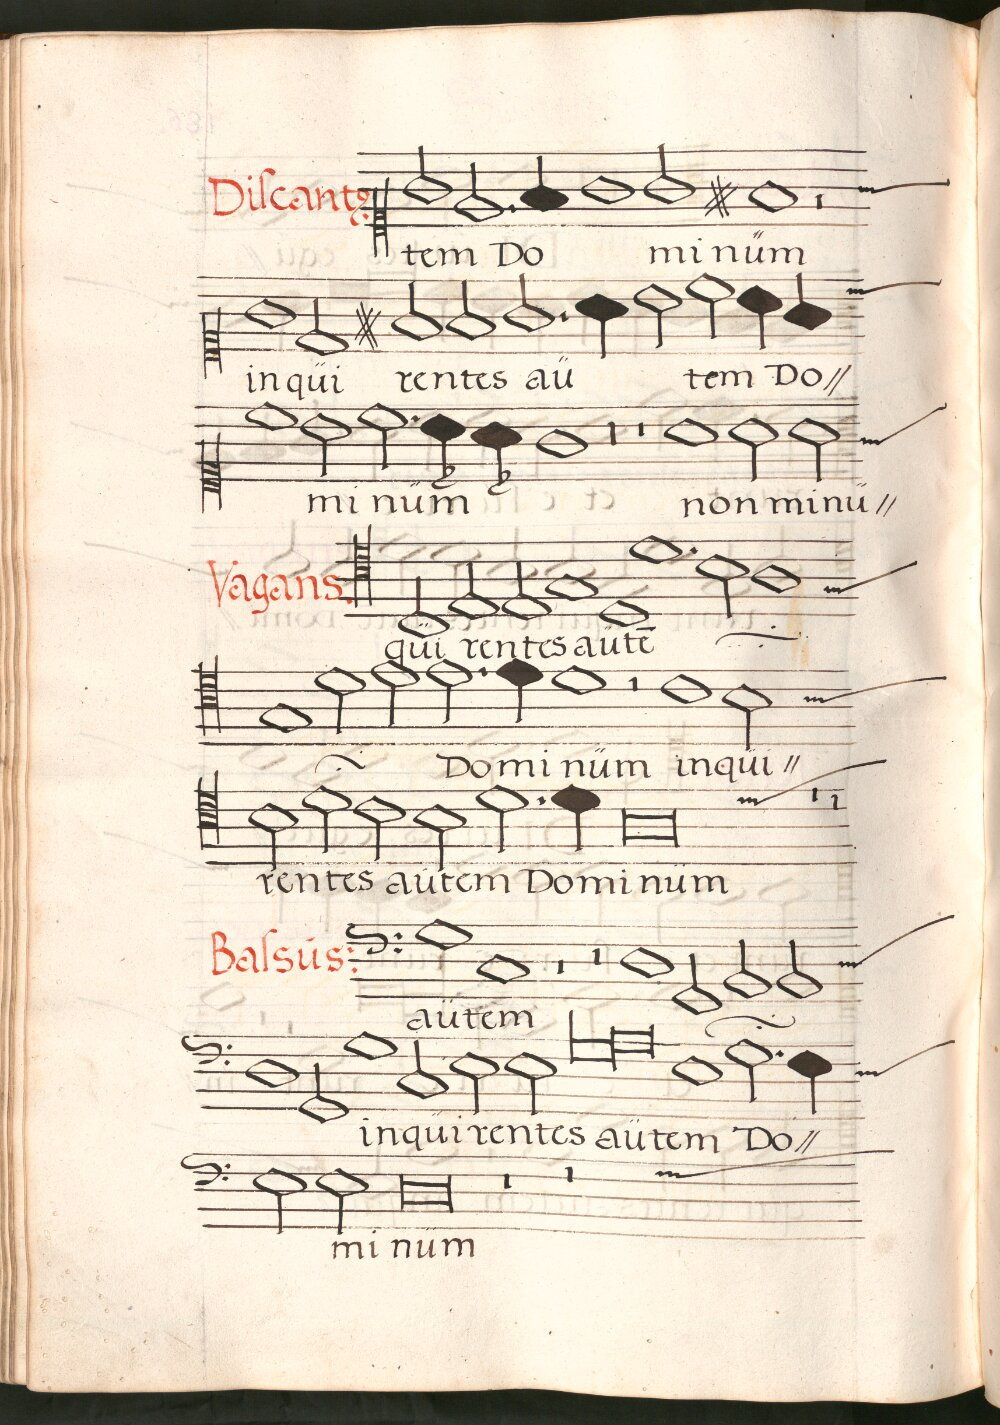 Discantꝰ
tem Do minüm
inqüi rentes aü tem Do//
mi nüm non minü//
Vagans:
qüi rentes aütē
Domi nüm inqüi//
rentes aütem Domi nüm
Bassüs:
aütem
inqüirentes aütem Do//
mi nüm